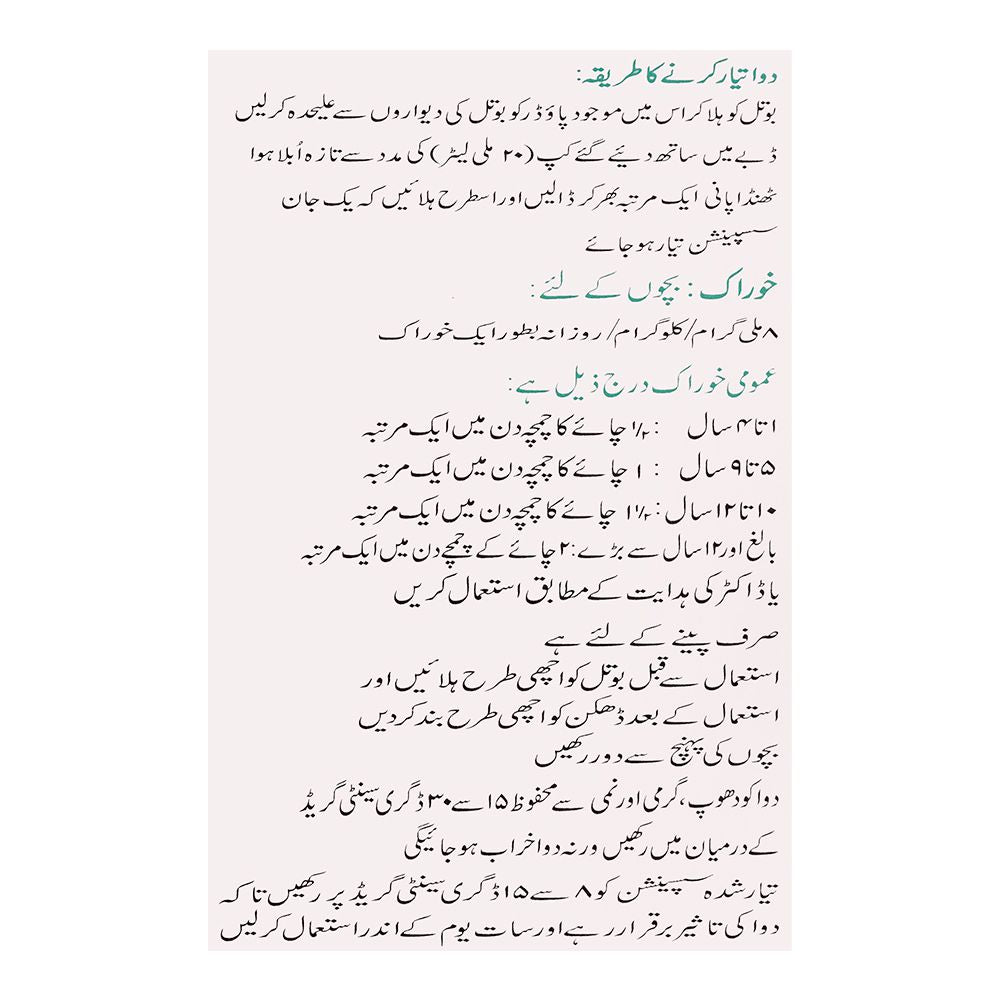 دوا تیار کرنے کا طریقہ:
بوتل کو ہلا کر اس میں موجود پاؤڈر کو بوتل کی دیواروں سے علیحدہ کر لیں
ڈبے میں ساتھ دیئے گئے کپ (۲۰ ملی لیٹر) کی مدد سے تازہ اُبلا ہوا
ٹھنڈا پانی ایک مرتبہ بھر کر ڈالیں اور اسطرح ہلائیں کہ یک جان
سسپینشن تیار ہو جائے
خوراک : بچوں کے لئے :
۸ ملی گرام/کلوگرام/ روزانہ بطور ایک خوراک
عمومی خوراک درج ذیل ہے :
۱ تا ۴ سال : ۱/۲ چائے کا چمچہ دن میں ایک مرتبہ
۵ تا ۹ سال : ۱ چائے کا چمچہ دن میں ایک مرتبہ
۱۰ تا ۱۲ سال : ۱ ۱/۲ چائے کا چمچہ دن میں ایک مرتبہ
بالغ اور ۱۲ سال سے بڑے : ۲ چائے کے چمچے دن میں ایک مرتبہ
یا ڈاکٹر کی ہدایت کے مطابق استعمال کریں
صرف پینے کے لئے ہے
استعمال سے قبل بوتل کو اچھی طرح ہلائیں اور
استعمال کے بعد ڈھکن کو اچھی طرح بند کر دیں
بچوں کی پہنچ سے دور رکھیں
دوا کو دھوپ، گرمی اور نمی سے محفوظ ۱۵ سے ۳۰ ڈگری سینٹی گریڈ
کے درمیان میں رکھیں ورنہ دوا خراب ہو جائیگی
تیار شدہ سسپینشن کو ۸ سے ۱۵ ڈگری سینٹی گریڈ پر رکھیں تا کہ
دوا کی تاثیر برقرار رہے اور سات یوم کے اندر استعمال کر لیں